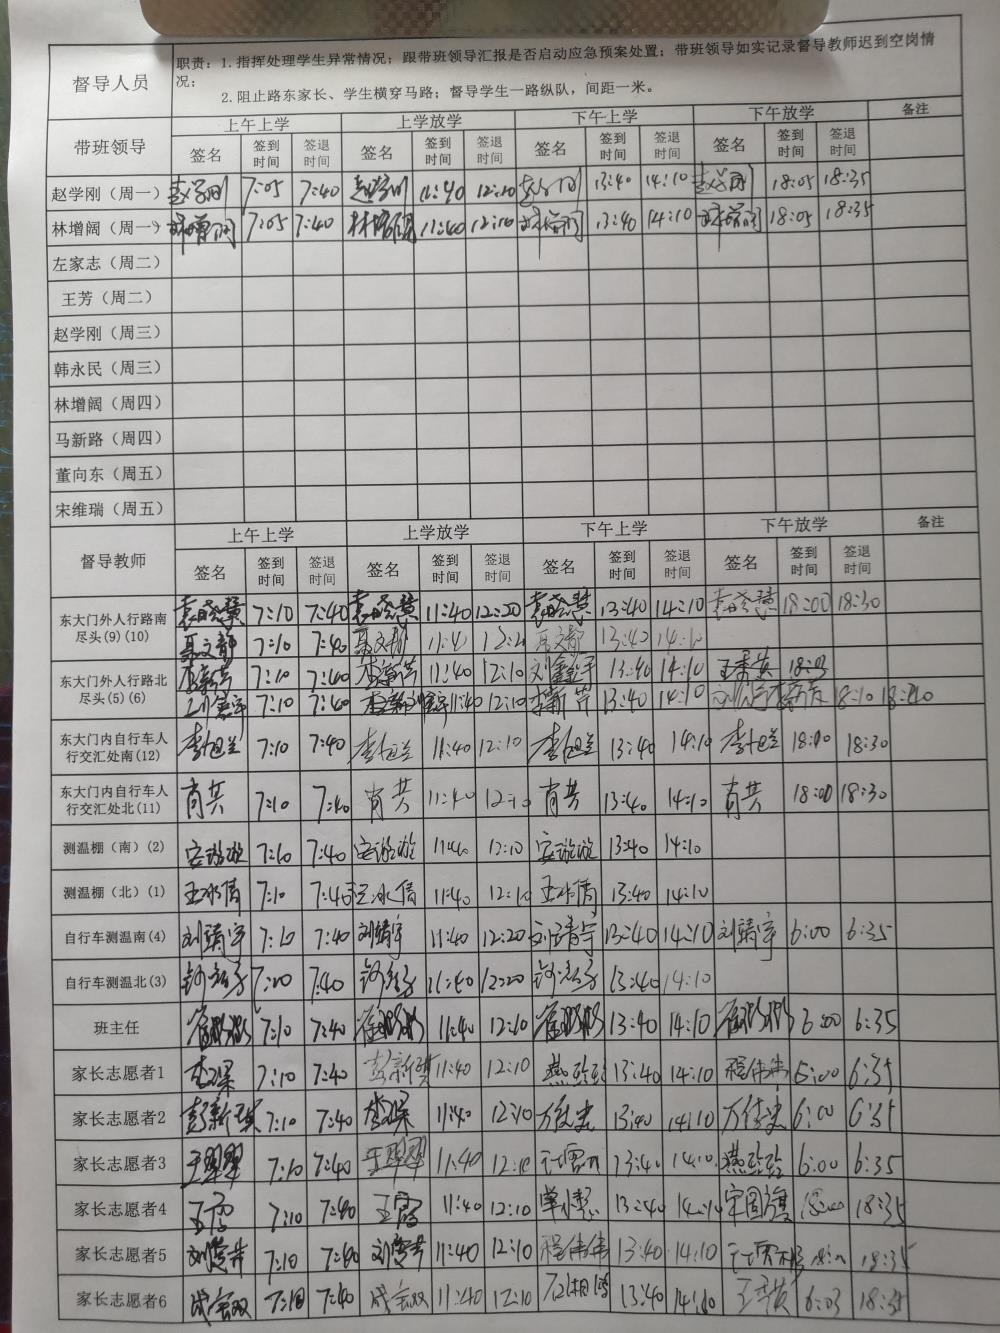 督导人员 职责：1.指挥处理学生异常情况；跟带班领导汇报是否启动应急预案处置；带班领导如实记录督导教师迟到空岗情
况；
2.阻止路东家长、学生横穿马路；督导学生一路纵队，间距一米。
带班领导 上午上学 上学放学 下午上学 下午放学 备注
签名 签到时间 签退时间 签名 签到时间 签退时间 签名 签到时间 签退时间 签名 签到时间 签退时间
赵学刚（周一） 赵学刚 7:05 7:40 赵学刚 11:40 12:10 赵学刚 13:40 14:10 赵学刚 18:05 18:35
林增阔（周一） 林增阔 7:05 7:40 林增阔 11:40 12:10 林增阔 13:40 14:10 林增阔 18:05 18:35
左家志（周二）
王芳（周二）
赵学刚（周三）
韩永民（周三）
林增阔（周四）
马新路（周四）
董向东（周五）
宋维瑞（周五）
督导教师 上午上学 上学放学 下午上学 下午放学 备注
签名 签到时间 签退时间 签名 签到时间 签退时间 签名 签到时间 签退时间 签名 签到时间 签退时间
东大门外人行路南尽头(9)(10) 7:10 7:40 11:40 12:20 13:40 14:10 18:00 18:30
7:10 7:40 13:40 14:10
东大门外人行路北尽头(5)(6) 7:10 7:40 11:40 12:10 13:40 14:10 18:03
7:10 7:40 11:40 12:10 13:40 14:10 18:10
东大门内自行车人行交汇处南(12) 7:10 7:40 11:40 12:10 13:40 14:10 18:00 18:30
东大门内自行车人行交汇处北(11) 肖共 7:10 7:40 肖共 11:40 12:10 肖共 13:40 14:10 肖共 18:00 18:30
测温棚（南）(2) 7:10 7:40 11:40 12:10 13:40 14:10
测温棚（北）(1) 王冰倩 7:10 7:40 王冰倩 11:40 12:10 王冰倩 13:40 14:10
自行车测温南(4) 刘靖宇 7:10 7:40 刘靖宇 11:40 12:20 刘靖宇 13:40 14:10 刘靖宇 6:00 6:35
自行车测温北(3) 7:00 7:40 11:40 12:20 13:40 14:10
班主任 7:10 7:40 11:40 12:10 13:40 14:10 6:00 6:35
家长志愿者1 7:10 7:40 彭新琪 11:40 12:10 13:40 14:10 程伟伟 6:35
家长志愿者2 彭新琪 7:10 7:40 11:40 12:10 13:40 14:10 6:00 6:35
家长志愿者3 王翠翠 7:10 7:40 王翠翠 11:40 12:10 13:40 14:10 6:00 6:35
家长志愿者4 王霞 7:10 7:40 王霞 11:40 12:10 13:40 14:10 18:00 18:35
家长志愿者5 7:10 7:40 11:40 12:10 程伟伟 13:40 14:10 18:35
家长志愿者6 7:10 7:40 11:40 12:10 13:40 14:10 6:03 18:35